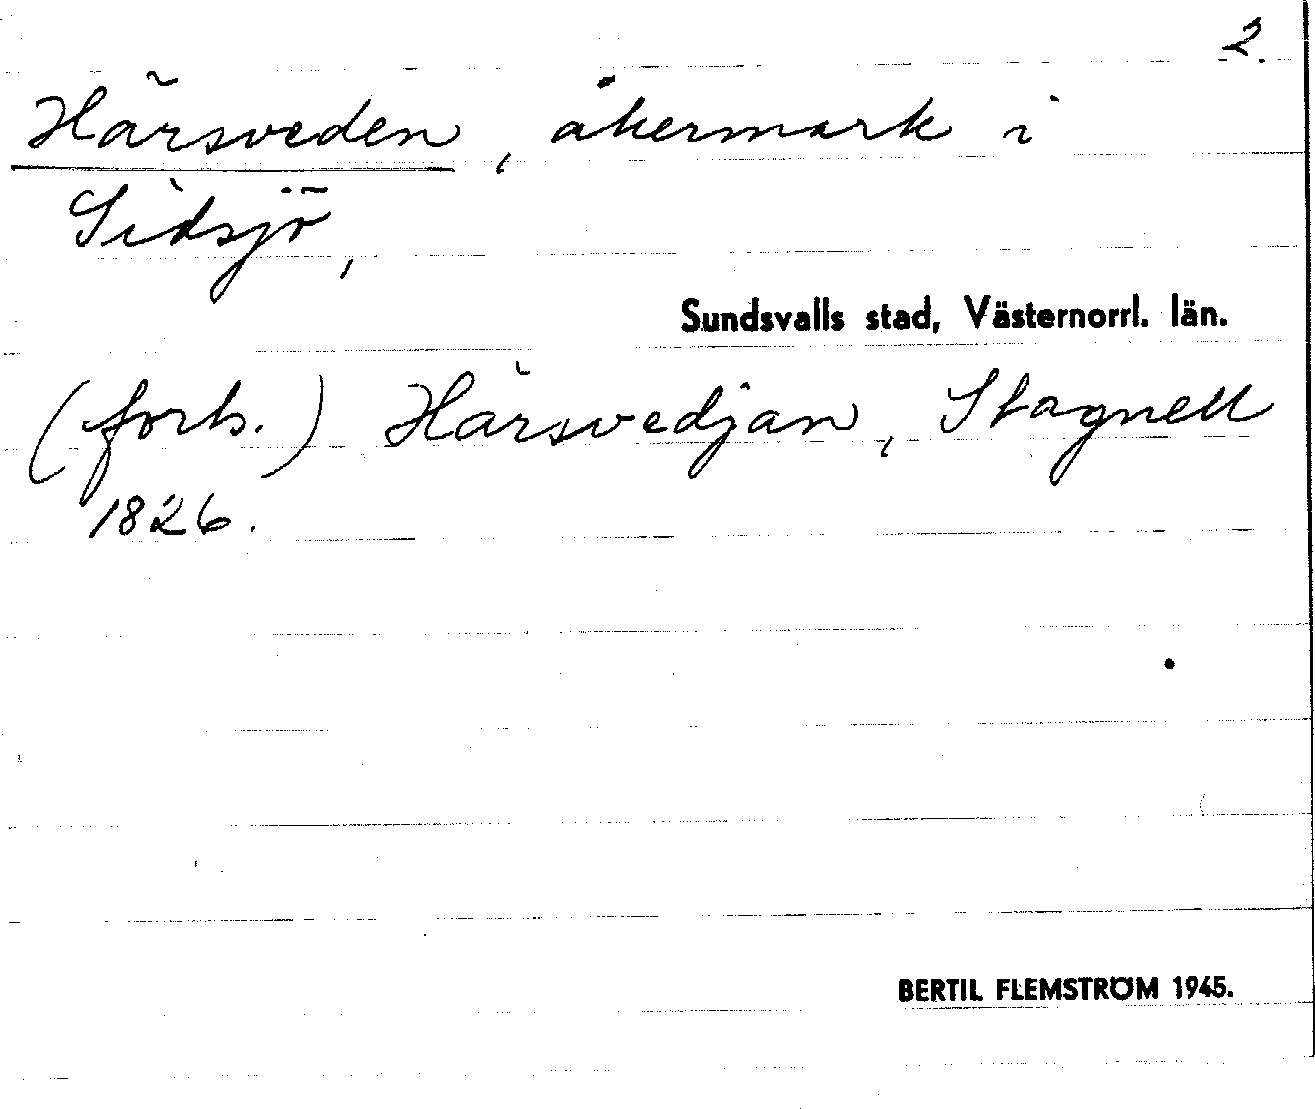 2.
Härsveden, åkermark i
Sidsjö,
Sundsvalls stad, Västernorrl. län.
(forts.) Härsvedjan, Stagnell
1826.
BERTIL FLEMSTRÖM 1945.